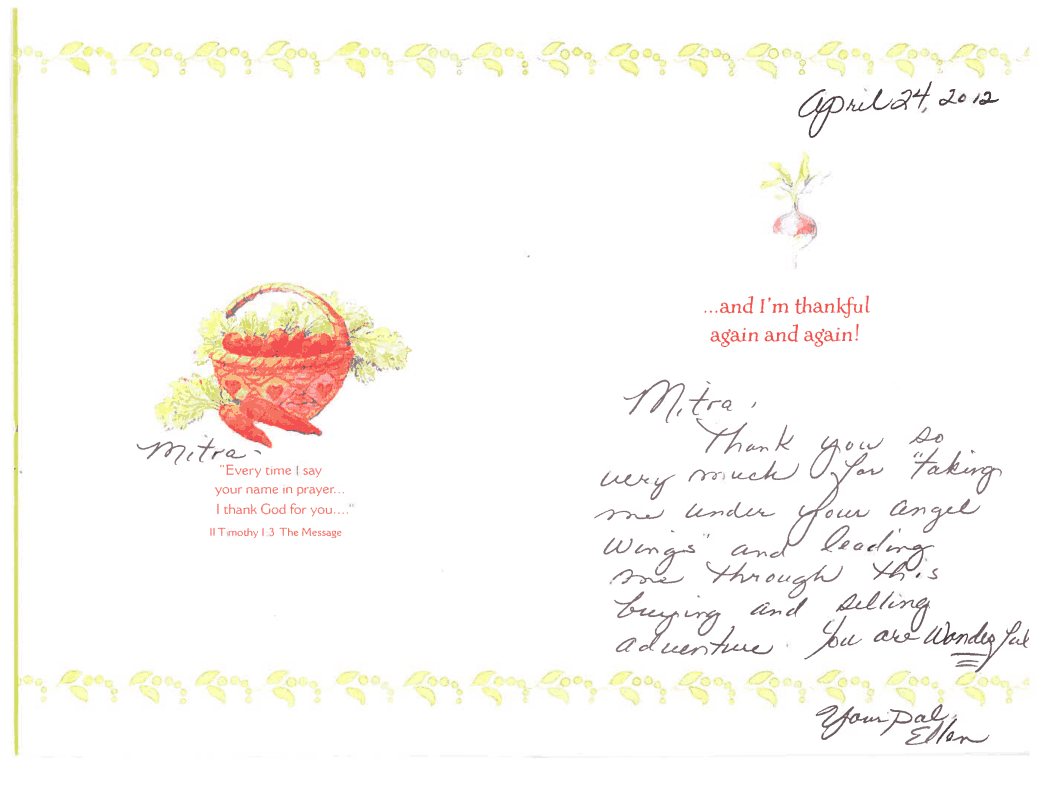 Mitra-
"Every time I say
your name in prayer...
I thank God for you...."
II Timothy 1:3 The Message
April 24, 2012
...and I'm thankful
again and again!
Mitra,
Thank you so
very much for "taking
me under your angel
wings" and leading
me through this
buying and selling
adventure. You are Wonderful
Your pal,
Ellen